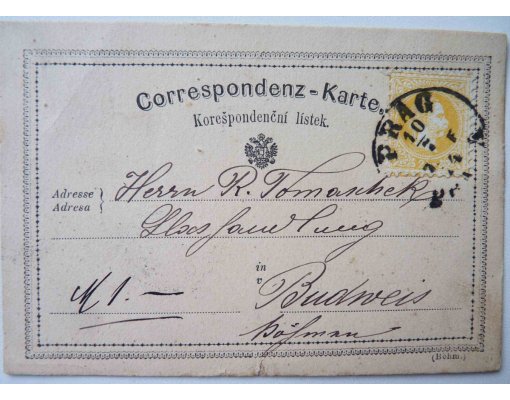 Correspondenz-Karte.
Korešpondenční lístek.
PRAG
10
Adresse
Adresa
Herrn R. Tomaschek
Glashandlung
in
v
Budweis
Böhmen
N 1. —
(Böhm.)